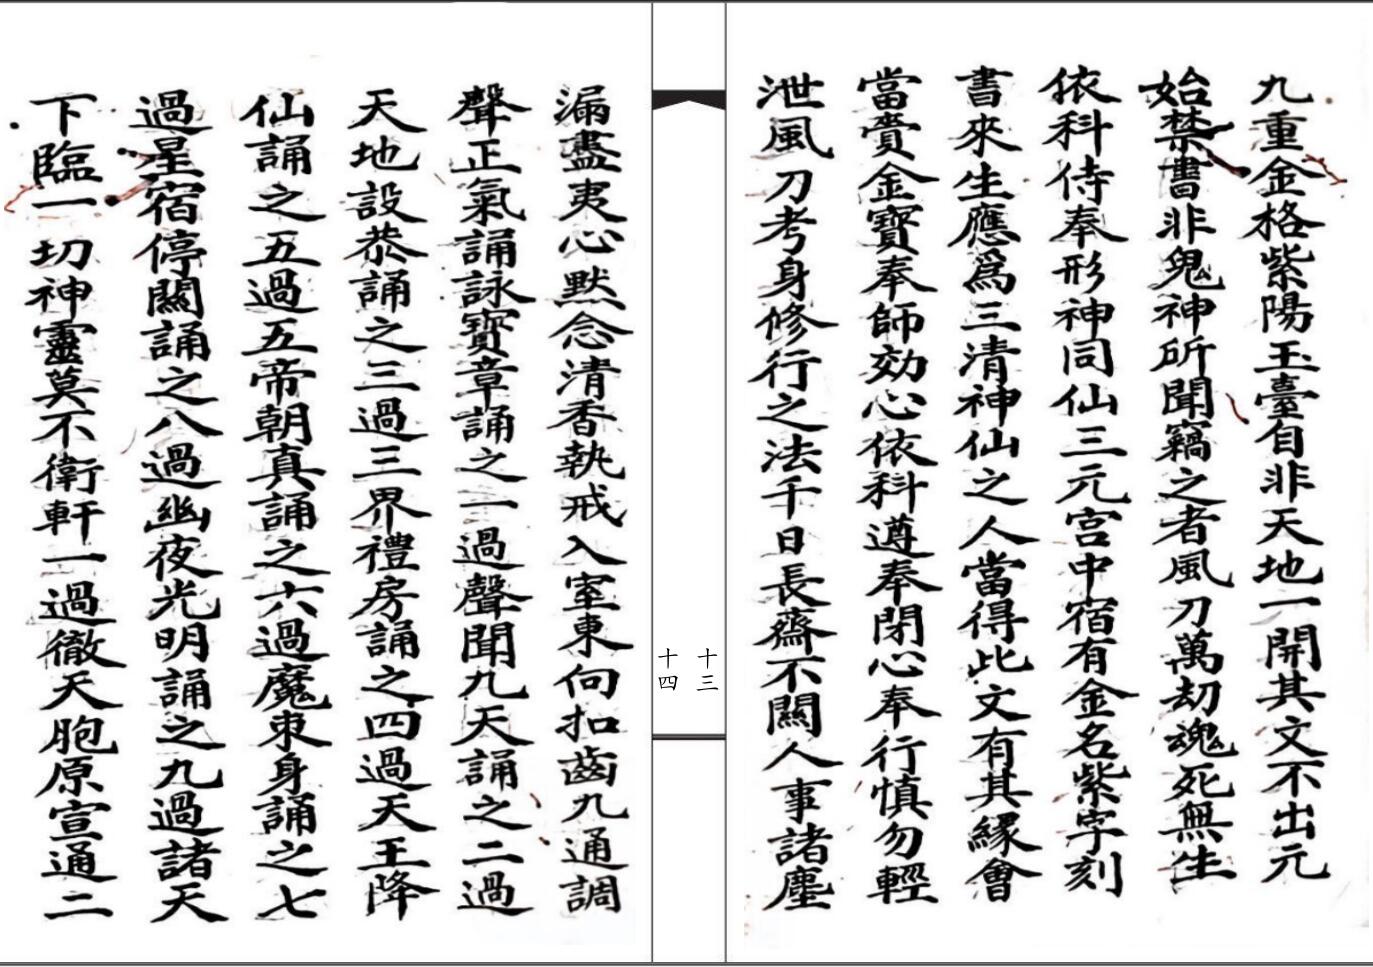 九重金格紫陽玉臺自非天地一開其文不出元
始禁書非鬼神所聞竊之者風刀萬劫魂死無生
依科侍奉形神同仙三元宮中宿有金名紫字刻
書來生應爲三清神仙之人當得此文有其緣會
當賫金寶奉師効心依科遵奉閉心奉行慎勿輕
泄風刀考身修行之法千日長齋不關人事諸塵
十三
十四
漏盡夷心默念清香執戒入室東向扣齒九通調
聲正氣誦詠寶章誦之一過聲聞九天誦之二過
天地設恭誦之三過三界禮房誦之四過天王降
仙誦之五過五帝朝真誦之六過魔束身誦之七
過星宿停關誦之八過幽夜光明誦之九過諸天
下臨一切神靈莫不衛軒一過徹天胞原宣通二